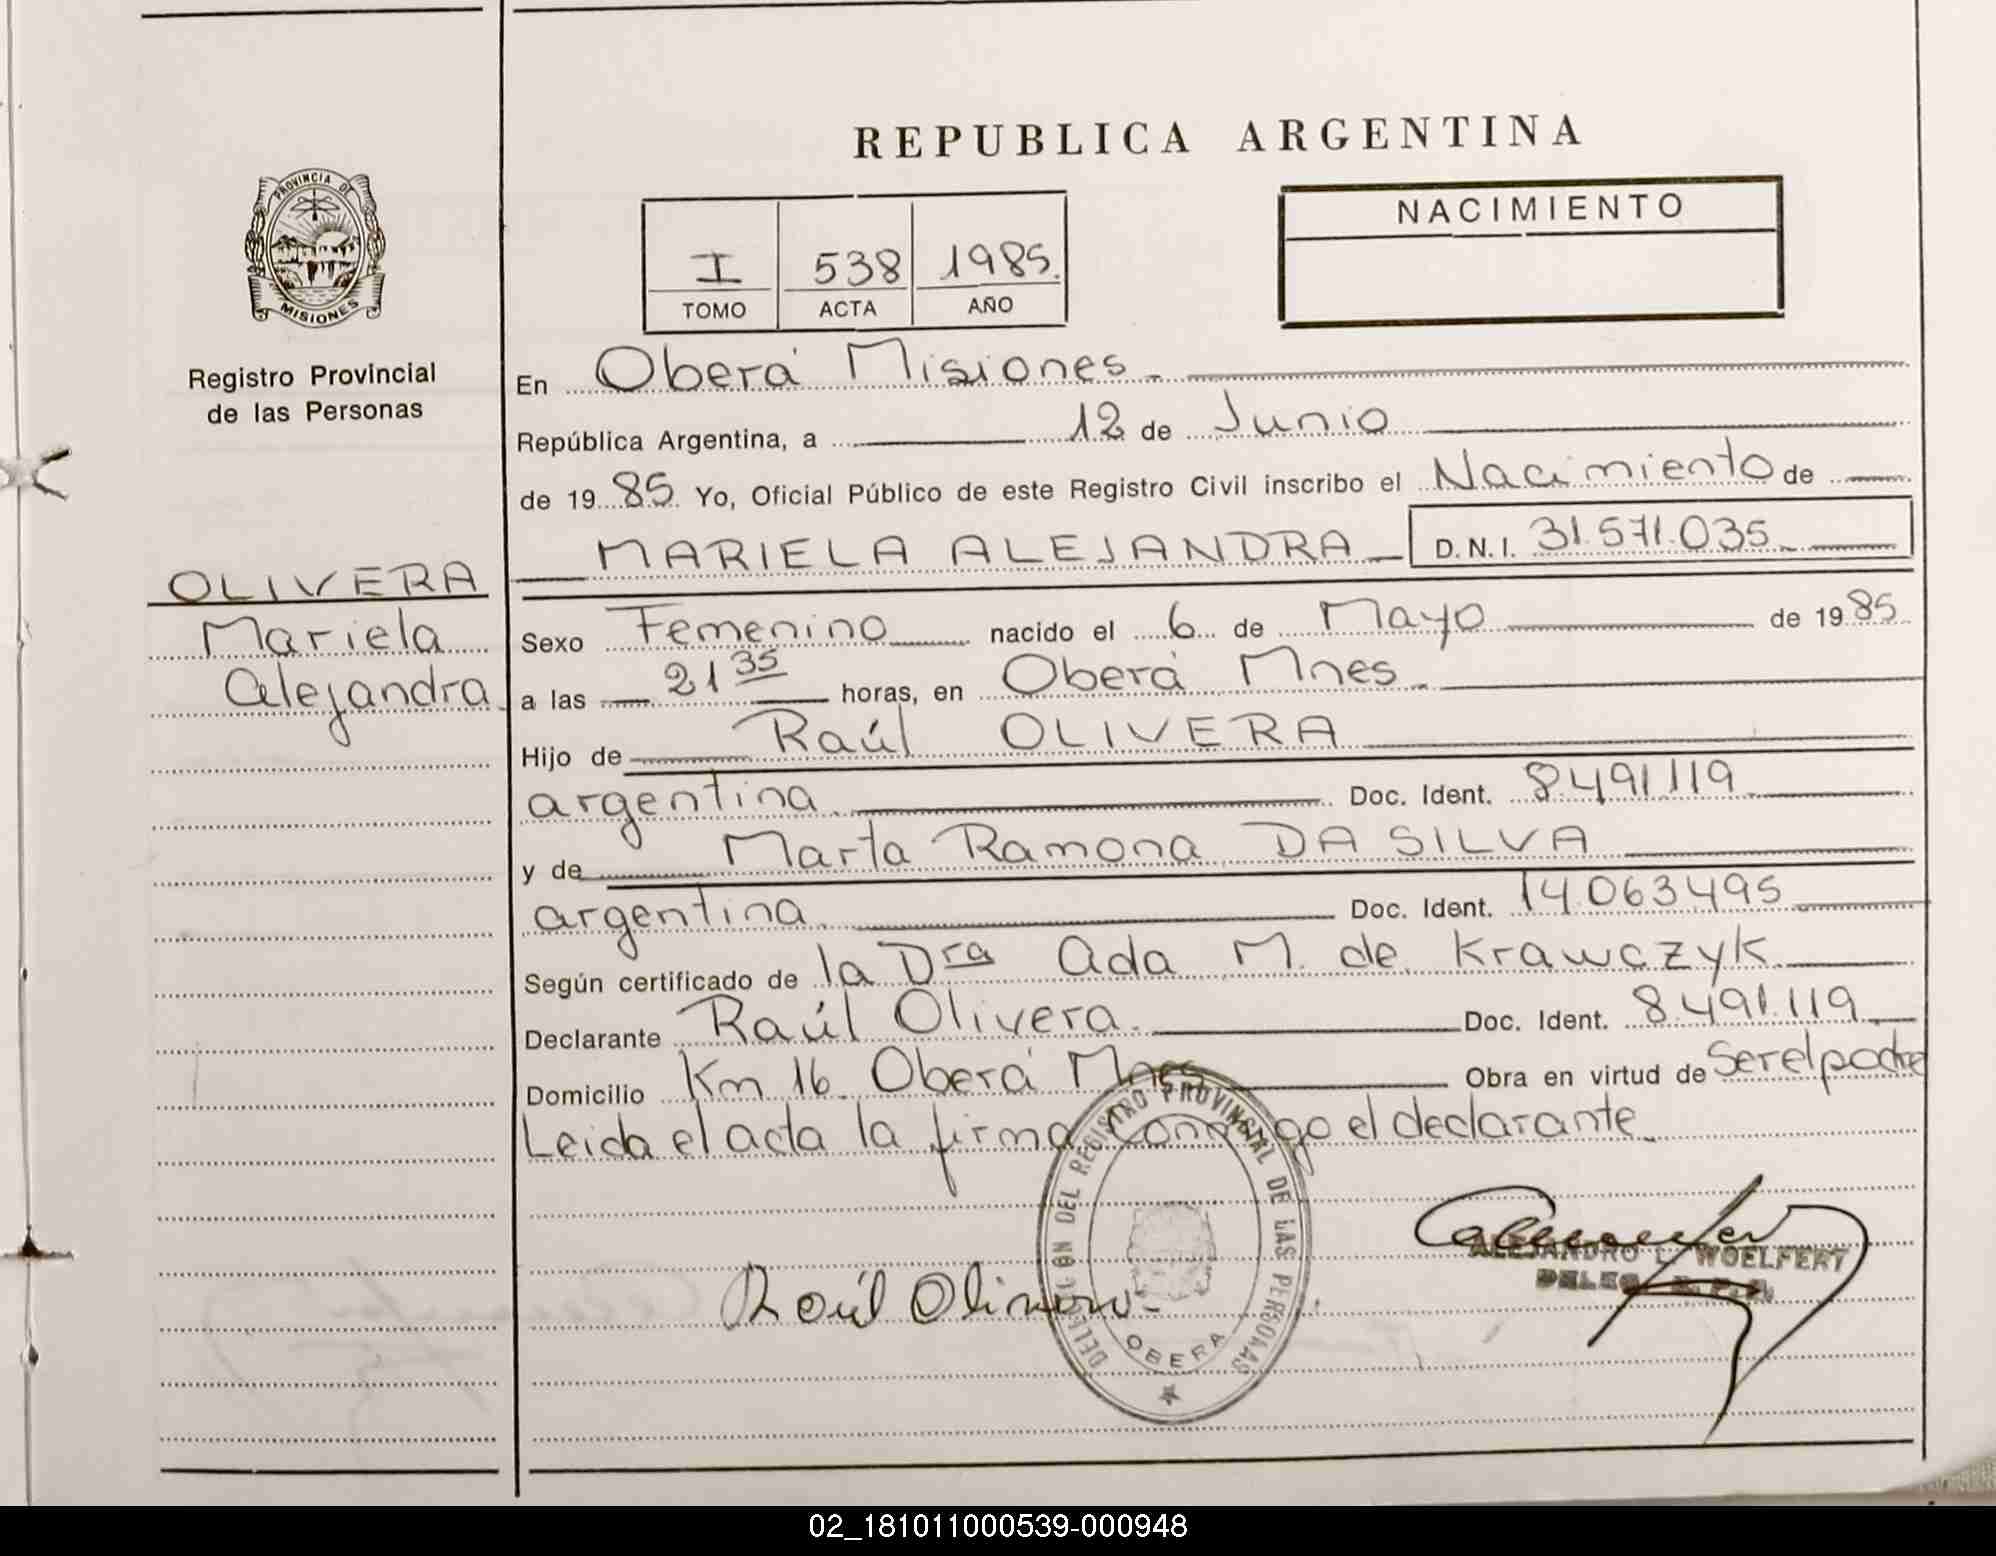 REPUBLICA ARGENTINA
PROVINCIA DE
MISIONES
Registro Provincial
de las Personas
I 538 1985.
TOMO ACTA AÑO
NACIMIENTO
En Oberá Misiones.
República Argentina, a 12 de Junio
de 1985 Yo, Oficial Público de este Registro Civil inscribo el Nacimiento de
MARIELA ALEJANDRA D.N.I. 31.571.035
OLIVERA
Mariela
Alejandra
Sexo Femenino nacido el 6 de Mayo de 1985
a las 21 35 horas, en Oberá Mnes
Hijo de Raúl OLIVERA
argentina Doc. Ident. 8.491.119
y de Marta Ramona DA SILVA
argentina Doc. Ident. 14.063.495
Según certificado de la Dra Ada M. de Krawczyk
Declarante Raúl Olivera. Doc. Ident. 8.491.119
Domicilio Km 16 Oberá Mnes Obra en virtud de Ser el padre
Leida el acta la firma conmigo el declarante.
DELEGACION DEL REGISTRO PROVINCIAL DE LAS PERSONAS
OBERA
Raúl Olivera
ALEJANDRO L. WOELFERT
02_181011000539-000948